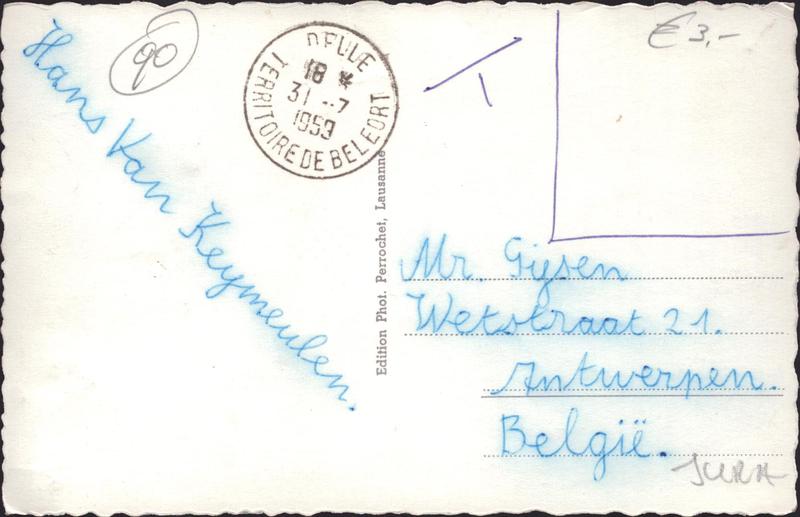 Hans Van Keymeulen.
90
DELLE
18 *
31 -7
1959
TERRITOIRE DE BELFORT
T
€ 3,-
Edition Phot. Perrochet, Lausanne
Mr. Gijsen
Wetstraat 21.
Antwerpen.
België.
JURA